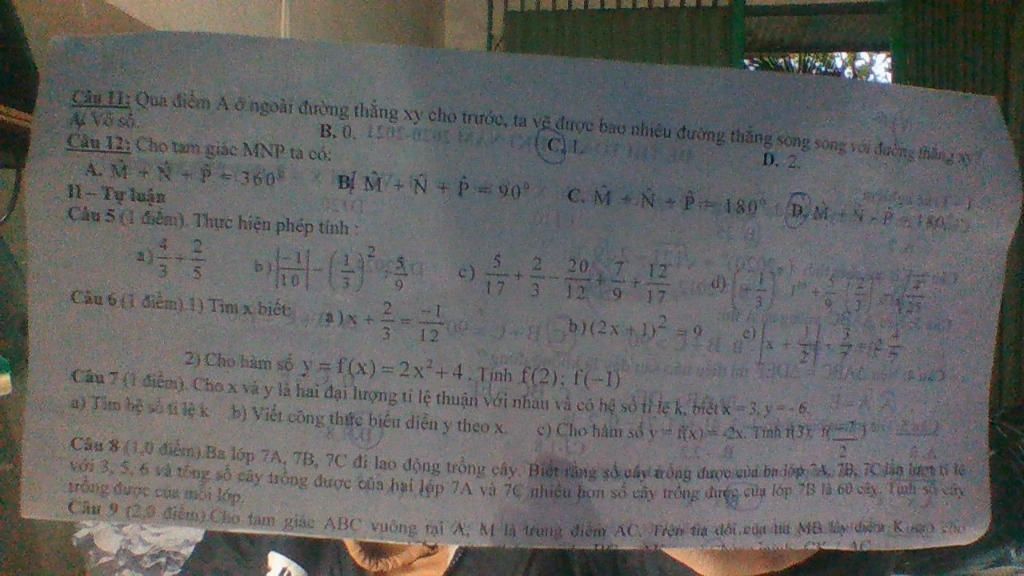 Câu 11: Qua điểm A ở ngoài đường thẳng xy cho trước, ta vẽ được bao nhiêu đường thẳng song song với đường thẳng xy?
A. Vô số. B. 0. C. 1. D. 2.
Câu 12: Cho tam giác MNP ta có:
A. M̂ + N̂ + P̂ = 360⁰ B. M̂ + N̂ + P̂ = 90⁰ C. M̂ + N̂ + P̂ = 180⁰ D.
II – Tự luận
Câu 5 (1 điểm). Thực hiện phép tính :
a) 4/3 + 2/5 b) |-1/10| - (1/3)² . 5/9 c) 5/17 + 2/3 - 20/12 + 7/9 + 12/17 d)
Câu 6 (1 điểm).1) Tìm x biết: a) x + 2/3 = -1/12 b) (2x + 1)² = 9 c)
2) Cho hàm số y = f(x) = 2x² + 4. Tính f(2); f(-1)
Câu 7 (1 điểm). Cho x và y là hai đại lượng tỉ lệ thuận với nhau và có hệ số tỉ lệ k, biết x = 3, y = - 6.
a) Tìm hệ số tỉ lệ k b) Viết công thức biểu diễn y theo x. c) Cho hàm số y = f(x) = -2x. Tính f(3);
Câu 8 (1,0 điểm).Ba lớp 7A, 7B, 7C đi lao động trồng cây. Biết rằng số cây trồng được của ba lớp 7A, 7B, 7C lần lượt tỉ lệ
với 3, 5, 6 và tổng số cây trồng được của hai lớp 7A và 7C nhiều hơn số cây trồng được của lớp 7B là 60 cây. Tính số cây
trồng được của mỗi lớp.
Câu 9 (2,0 điểm).Cho tam giác ABC vuông tại A, M là trung điểm AC. Trên tia đối của tia MB lấy điểm K sao cho